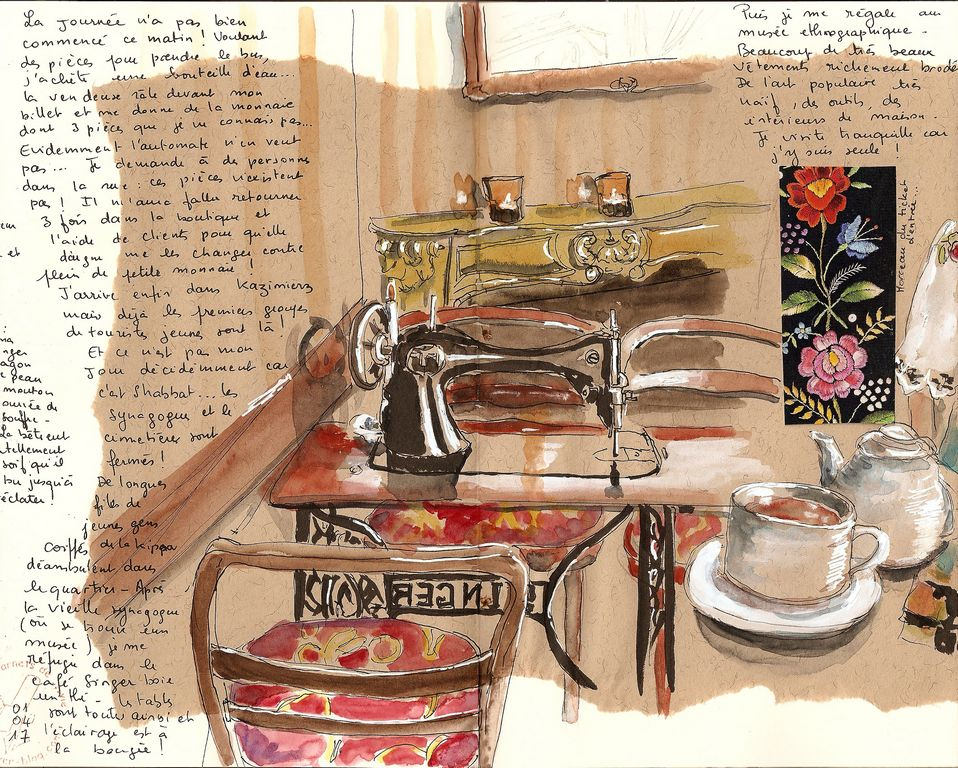 La journée n'a pas bien
commencé ce matin ! Voulant
des pièces pour prendre le bus,
j'achète une bouteille d'eau...
la vendeuse râle devant mon
billet et me donne de la monnaie
dont 3 pièces que je ne connais pas...
Evidemment l'automate n'en veut
pas... Je demande à des personnes
dans la rue : ces pièces n'existent
pas ! Il m'aura fallu retourner
3 fois dans la boutique et
l'aide de clients pour qu'elle
daigne me les changer contre
plein de petite monnaie !
J'arrive enfin dans Kazimierz
mais déjà les premiers groupes
de touristes jeunes sont là !
Et ce n'est pas mon
jour décidemment car
c'est Shabbat... les
synagogue et le
cimetières sont
fermés !
De longues
files de
jeunes gens
coiffés de la kippa
déambulent dans
le quartier - Après
la vieille synagogue
(où se trouve un
musée) je me
réfugie dans le
café Singer boire
un thé - les tables
sont toutes ainsi et
l'éclairage est à
la bougie !
01
04
17
mouton
La bêtient
tellement
soif qu'il
bu jusqu'à
éclater !
Puis je me régale au
musée ethnographique -
Beaucoup de très beaux
vêtements richement brodé
De l'art populaire très
naïf, des outils, des
intérieurs de maison -
Je visite tranquille car
j'y suis seule !
Morceau du ticket
d'entrée...
SINGER